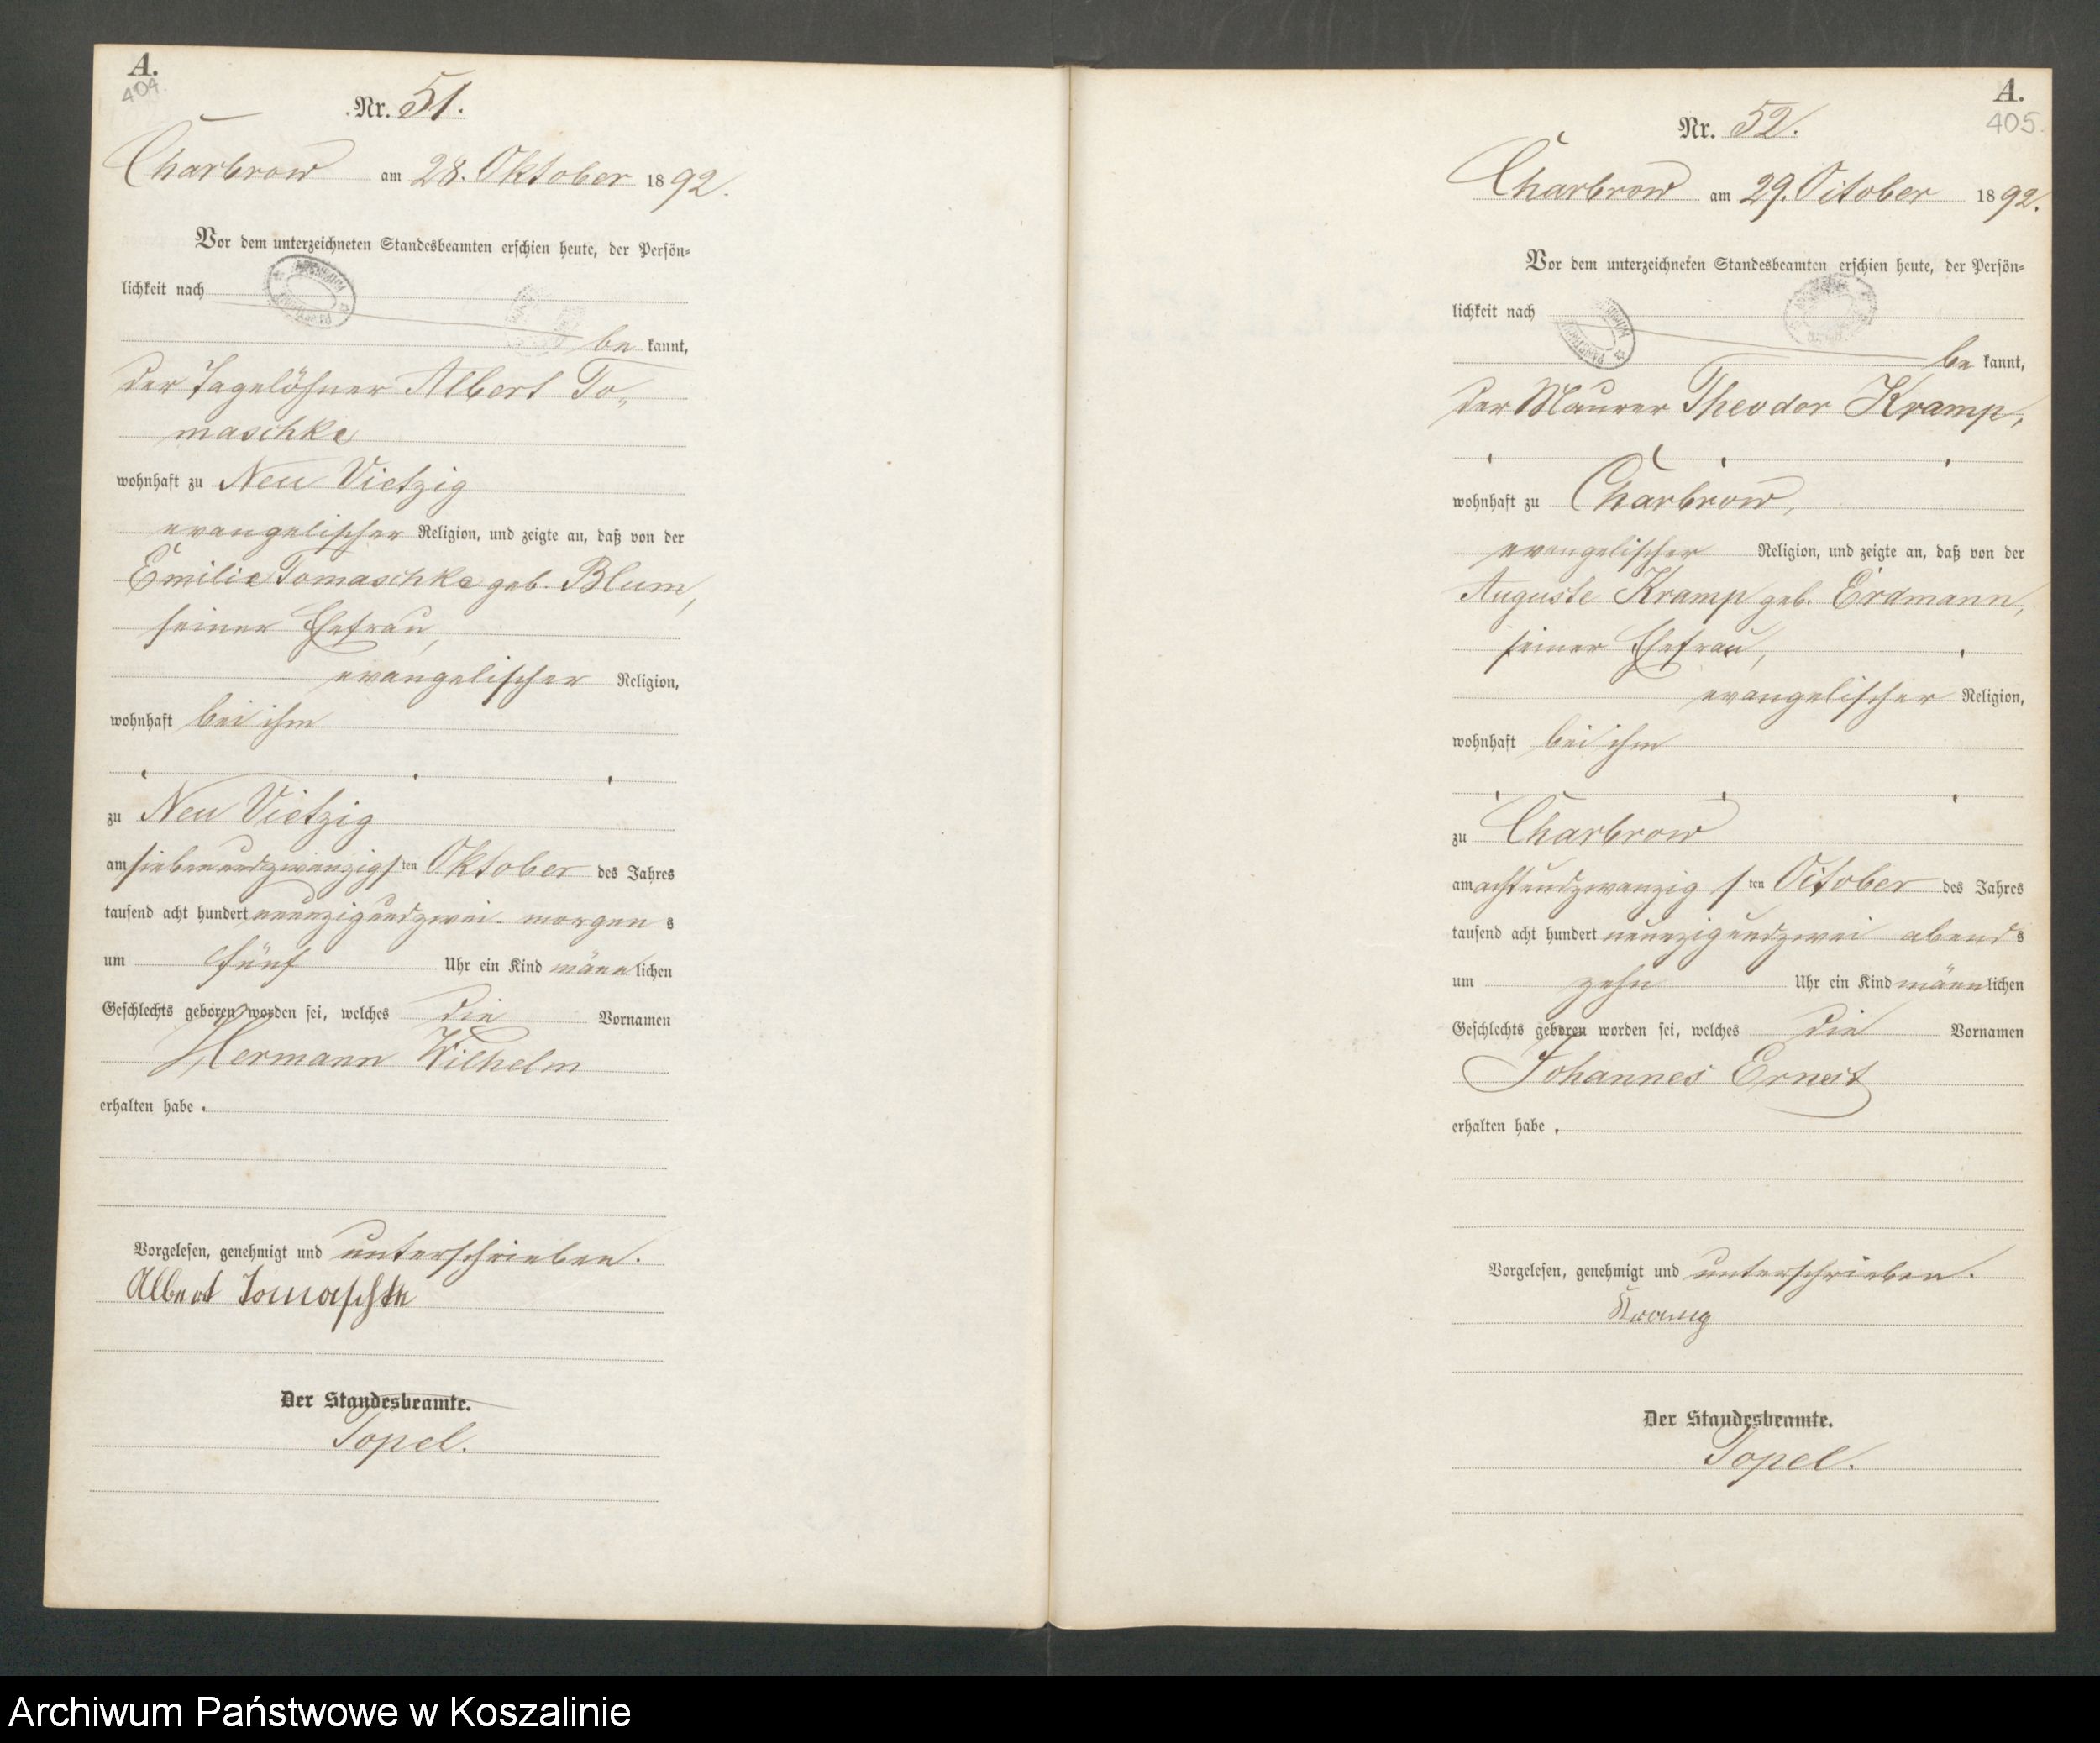 A.
404
Nr. 51.
Charbrow am 28. Oktober 1892.
Vor dem unterzeichneten Standesbeamten erschien heute, der Persön-
lichkeit nach
be kannt,
der Tagelöhner Albert To-
maschke
wohnhaft zu Neu Vietzig
evangelischer Religion, und zeigte an, daß von der
Emilie Tomaschke geb. Blum,
seiner Ehefrau,
evangelischer Religion,
wohnhaft bei ihm
zu Neu Vietzig
am siebenundzwanzigsten Oktober des Jahres
tausend acht hundert neunzigundzwei morgens
um fünf Uhr ein Kind männlichen
Geschlechts geboren worden sei, welches die Vornamen
Hermann Wilhelm
erhalten habe.
Vorgelesen, genehmigt und unterschrieben.
Albert Tomaschke
Der Standesbeamte.
Topel.
A.
405
Nr. 52.
Charbrow am 29. October 1892.
Vor dem unterzeichneten Standesbeamten erschien heute, der Persön-
lichkeit nach
be kannt,
der Maurer Theodor Kramp,
wohnhaft zu Charbrow,
evangelischer Religion, und zeigte an, daß von der
Auguste Kramp geb. Erdmann,
seiner Ehefrau,
evangelischer Religion,
wohnhaft bei ihm
zu Charbrow
am achtundzwanzigsten October des Jahres
tausend acht hundert neunzigundzwei abends
um zehn Uhr ein Kind männlichen
Geschlechts geboren worden sei, welches die Vornamen
Johannes Ernst
erhalten habe.
Vorgelesen, genehmigt und unterschrieben.
Kramp
Der Standesbeamte.
Topel.
Archiwum Państwowe w Koszalinie